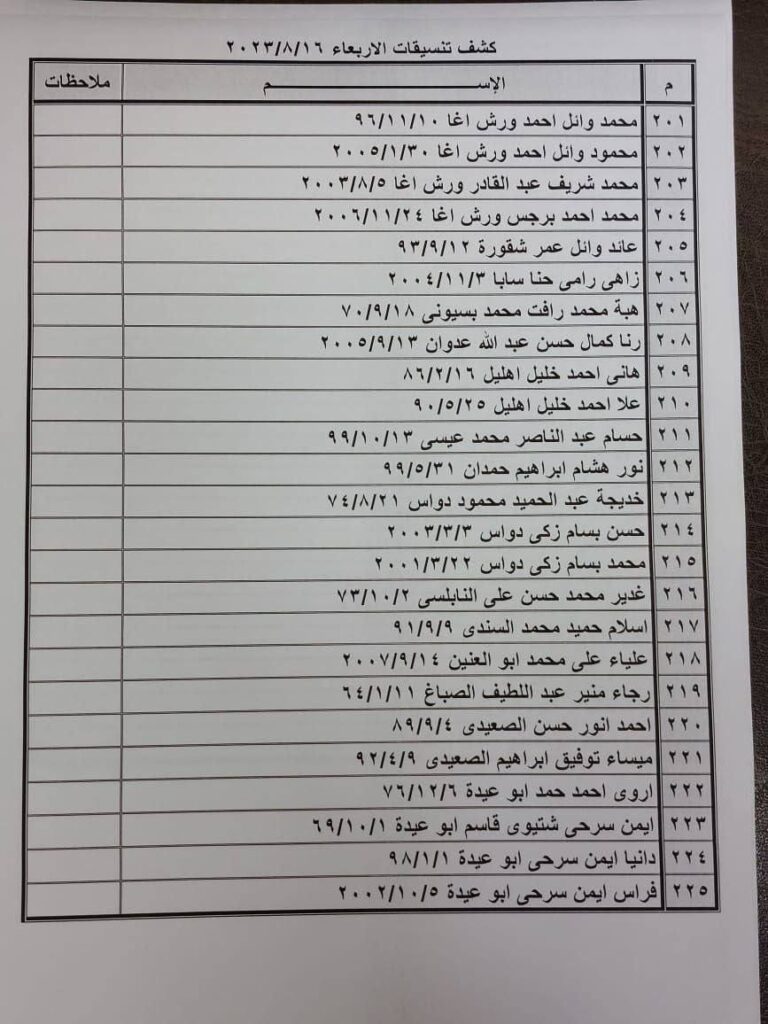 كشف تنسيقات الاربعاء ٢٠٢٣/٨/١٦
م الإســـــــــــــم ملاحظات
٢٠١ محمد وائل احمد ورش اغا ٩٦/١١/١٠
٢٠٢ محمود وائل احمد ورش اغا ٢٠٠٥/١/٣٠
٢٠٣ محمد شريف عبد القادر ورش اغا ٢٠٠٣/٨/٥
٢٠٤ محمد احمد برجس ورش اغا ٢٠٠٦/١١/٢٤
٢٠٥ عائد وائل عمر شقورة ٩٣/٩/١٢
٢٠٦ زاهى رامى حنا سابا ٢٠٠٤/١١/٣
٢٠٧ هبة محمد رافت محمد بسيونى ٧٠/٩/١٨
٢٠٨ رنا كمال حسن عبد الله عدوان ٢٠٠٥/٩/١٣
٢٠٩ هانى احمد خليل اهليل ٨٦/٢/١٦
٢١٠ علا احمد خليل اهليل ٩٠/٥/٢٥
٢١١ حسام عبد الناصر محمد عيسى ٩٩/١٠/١٣
٢١٢ نور هشام ابراهيم حمدان ٩٩/٥/٣١
٢١٣ خديجة عبد الحميد محمود دواس ٧٤/٨/٢١
٢١٤ حسن بسام زكى دواس ٢٠٠٣/٣/٣
٢١٥ محمد بسام زكى دواس ٢٠٠١/٣/٢٢
٢١٦ غدير محمد حسن على النابلسى ٧٣/١٠/٢
٢١٧ اسلام حميد محمد السندى ٩١/٩/٩
٢١٨ علياء على محمد ابو العنين ٢٠٠٧/٩/١٤
٢١٩ رجاء منير عبد اللطيف الصباغ ٦٤/١/١١
٢٢٠ احمد انور حسن الصعيدى ٨٩/٩/٤
٢٢١ ميساء توفيق ابراهيم الصعيدى ٩٢/٤/٩
٢٢٢ اروى احمد حمد ابو عيدة ٧٦/١٢/٦
٢٢٣ ايمن سرحى شتيوى قاسم ابو عيدة ٦٩/١٠/١
٢٢٤ دانيا ايمن سرحى ابو عيدة ٩٨/١/١
٢٢٥ فراس ايمن سرحى ابو عيدة ٢٠٠٢/١٠/٥